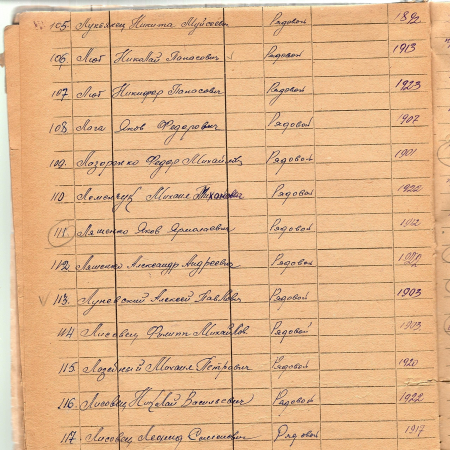 105. Лукьянец Никита Муйсеевич Рядовой
106. Лют Николай Панасович Рядовой 1913
107. Лют Никифор Панасович Рядовой 1923
108. Лага Яков Федорович Рядовой 1907
109. Лазоренко Федор Михайлов Рядовой 1901
110. Михаил Рядовой 1920
111. Ляшенко Яков Ермолаевич Рядовой
112. Ляшенко Александр Андреевич Рядовой
113. Луневский Алексей Павлович Рядовой 1903
114. Лисовец Филипп Михайлов Рядовой 1903
115. Михаил Петрович Рядовой 1920
116. Лисовец Николай Васильевич Рядовой 1922
117. Лисовец Леонид Семенович Рядовой 1917